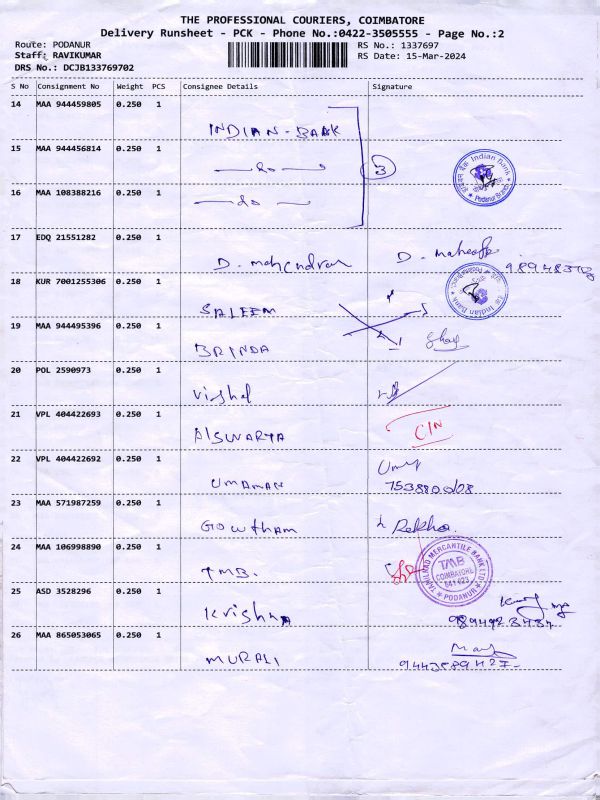 THE PROFESSIONAL COURIERS, COIMBATORE
Delivery Runsheet - PCK - Phone No.:0422-3505555 - Page No.:2
Route: PODANUR
RS No.: 1337697
Staff: RAVIKUMAR
RS Date: 15-Mar-2024
DRS No.: DCJB133769702
S No Consignment No Weight PCS Consignee Details Signature
14 MAA 944459805 0.250 1
INDIAN-BANK
15 MAA 944456814 0.250 1
do 3
Indian Bank
Podanur Branch
16 MAA 108388216 0.250 1
do
17 EDQ 21551282 0.250 1
D. mahendran D.
18 KUR 7001255306 0.250 1
Indian Bank
SALEEM
19 MAA 944495396 0.250 1
BRINDA
20 POL 2590973 0.250 1
Vishal
21 VPL 404422693 0.250 1
AISWARYA C/N
22 VPL 404422692 0.250 1
UMAMAN
23 MAA 571987259 0.250 1
GOWTHAM Rekha.
24 MAA 106998890 0.250 1
TMB.
TAMILNAD MERCANTILE BANK LTD
TMB
COIMBATORE
641 023
PODANUR
25 ASD 3528296 0.250 1
Krishna
26 MAA 865053065 0.250 1
MURALI